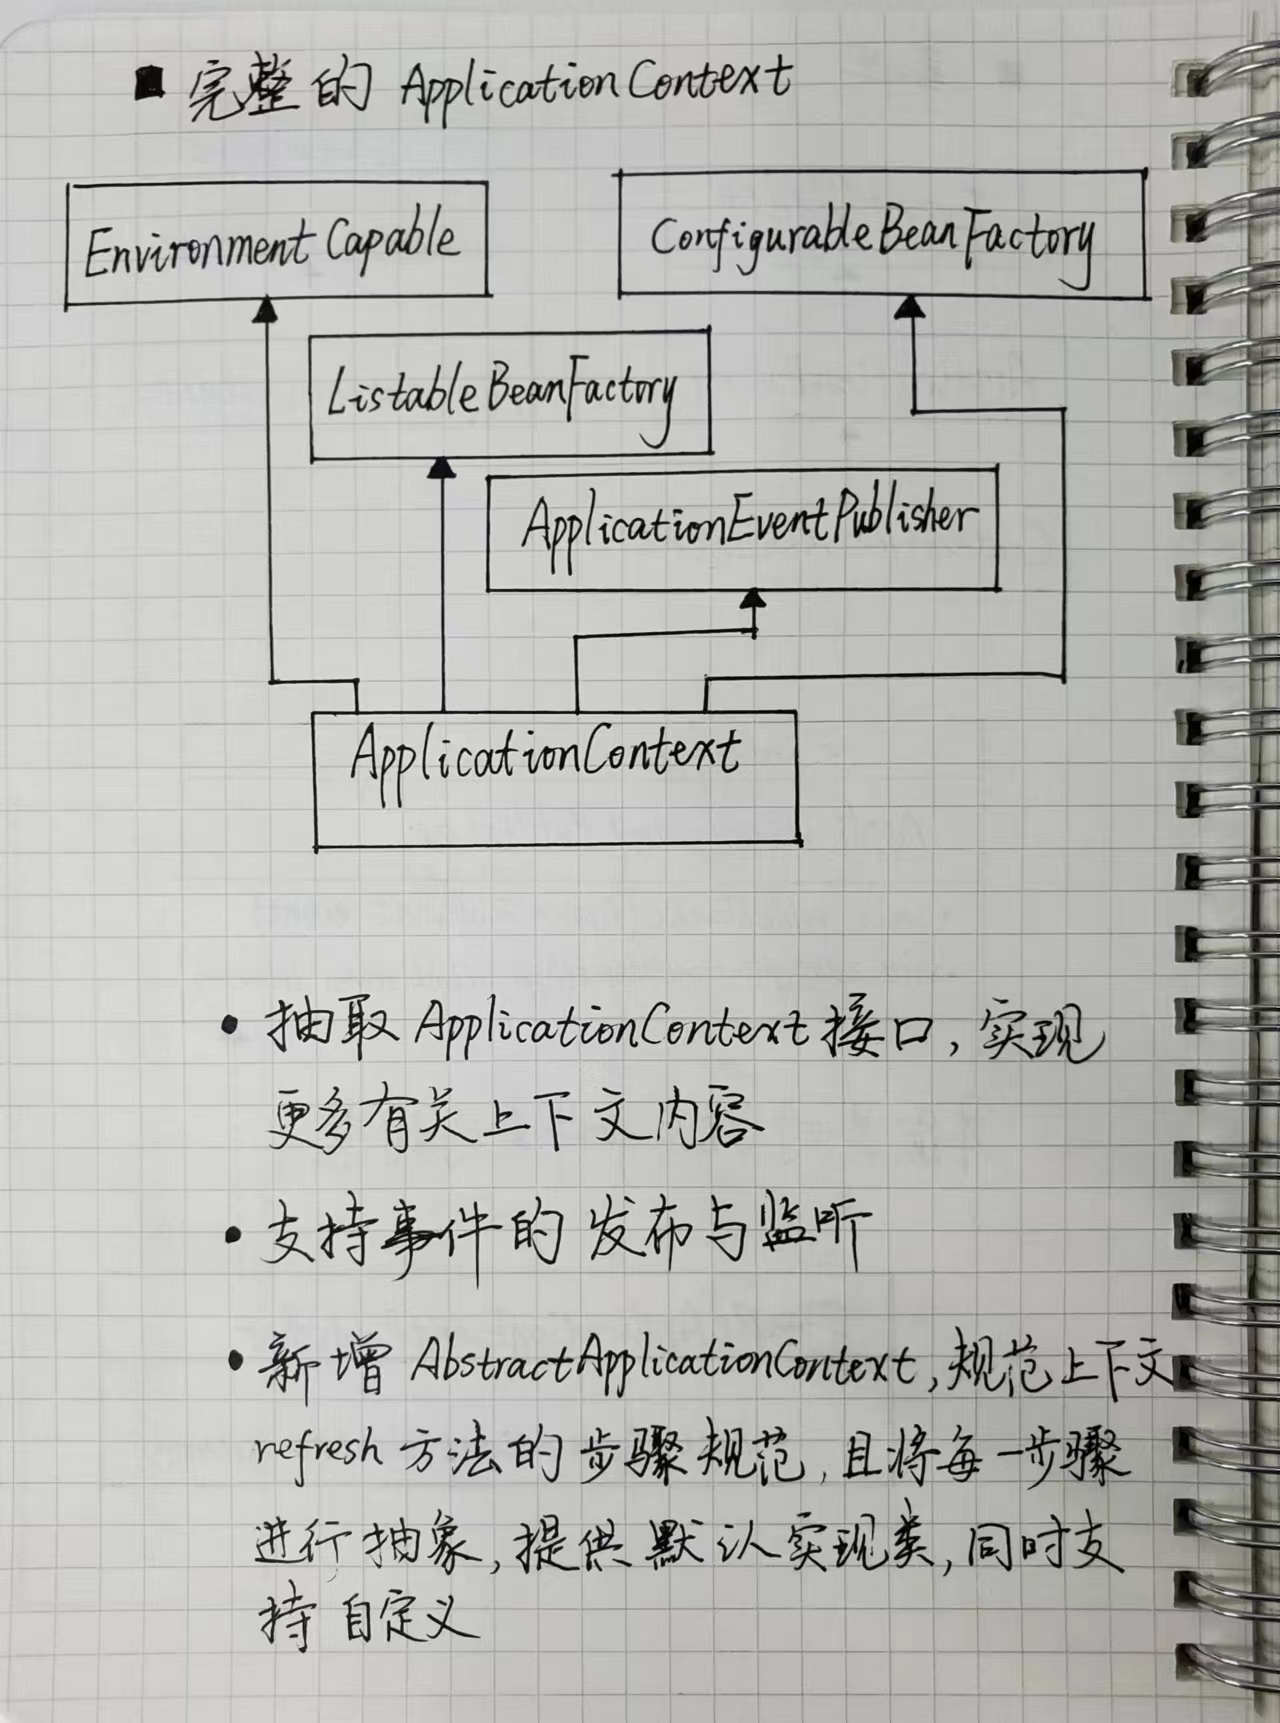 ■ 完整的 ApplicationContext
EnvironmentCapable
ConfigurableBeanFactory
ListableBeanFactory
ApplicationEventPublisher
ApplicationContext
• 抽取 ApplicationContext 接口, 实现
更多有关上下文内容
• 支持事件的发布与监听
• 新增 AbstractApplicationContext, 规范上下文
refresh 方法的步骤规范, 且将每一步骤
进行抽象, 提供默认实现类, 同时支
持自定义